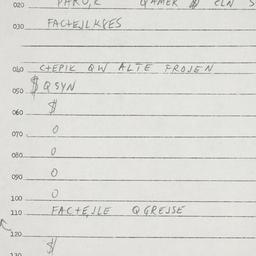 020
030 FACTEJLKKES
040 CTEPIK QW ALTE FROJEN
050 $ QSYN
060 $
070 0
080 0
090 0
100 0
110 FACTEJLE QGREJSE
120 $
130